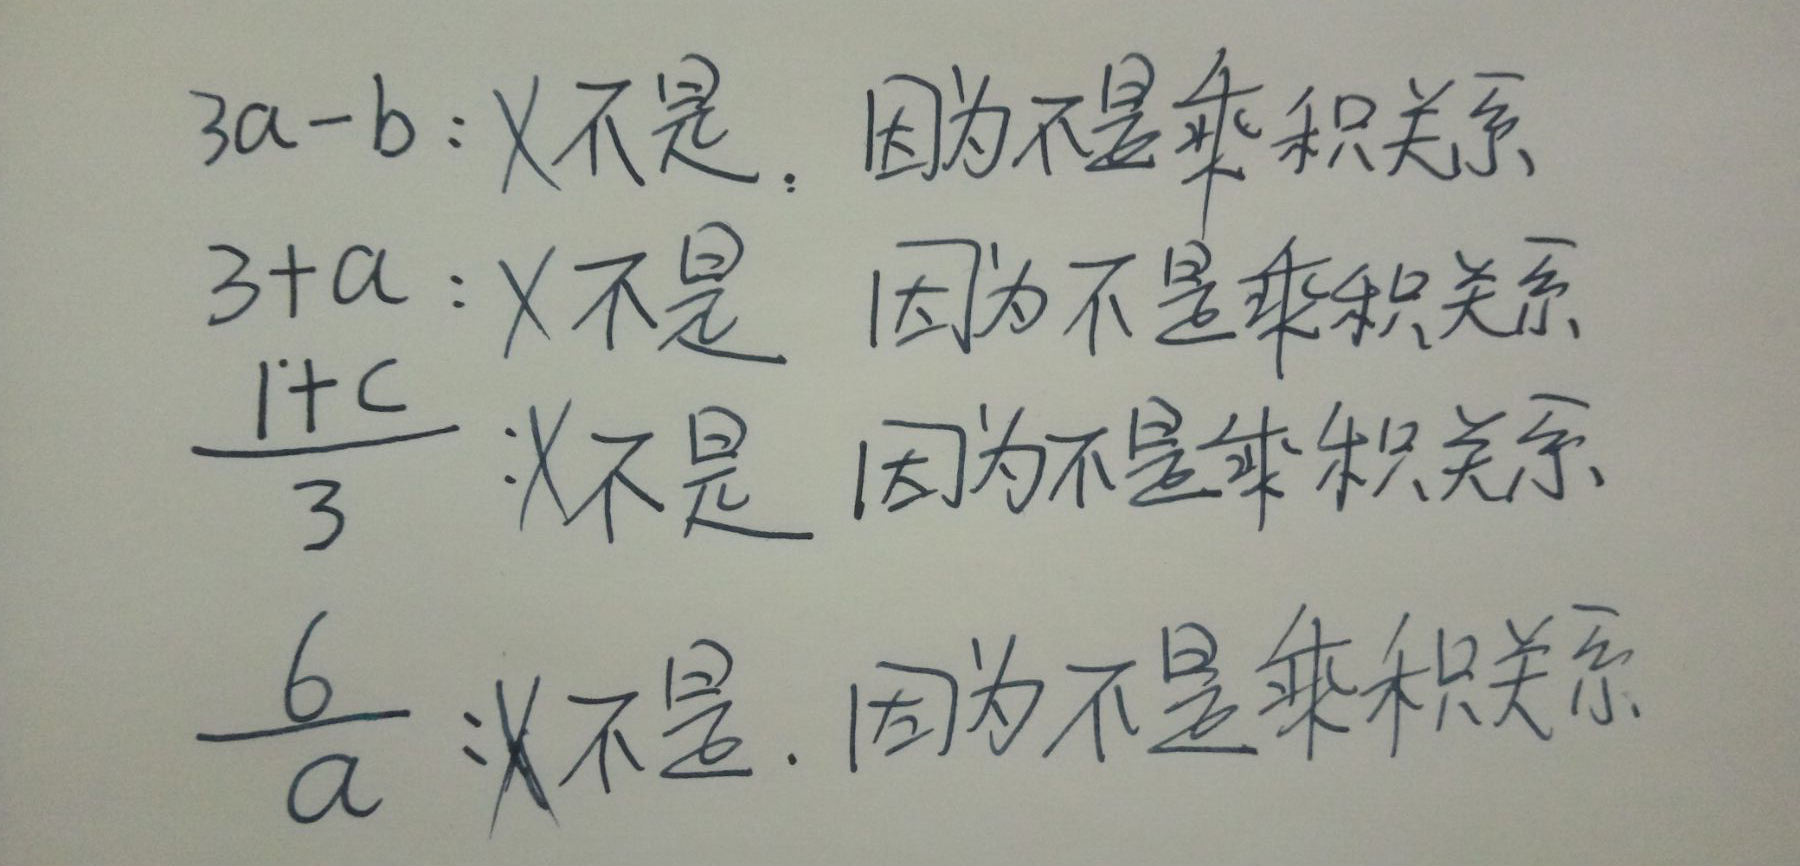 3a-b:X不是. 因为不是乘积关系
3+a:X不是 因为不是乘积关系
1+c
3
:X不是 因为不是乘积关系
6
a
:X不是. 因为不是乘积关系